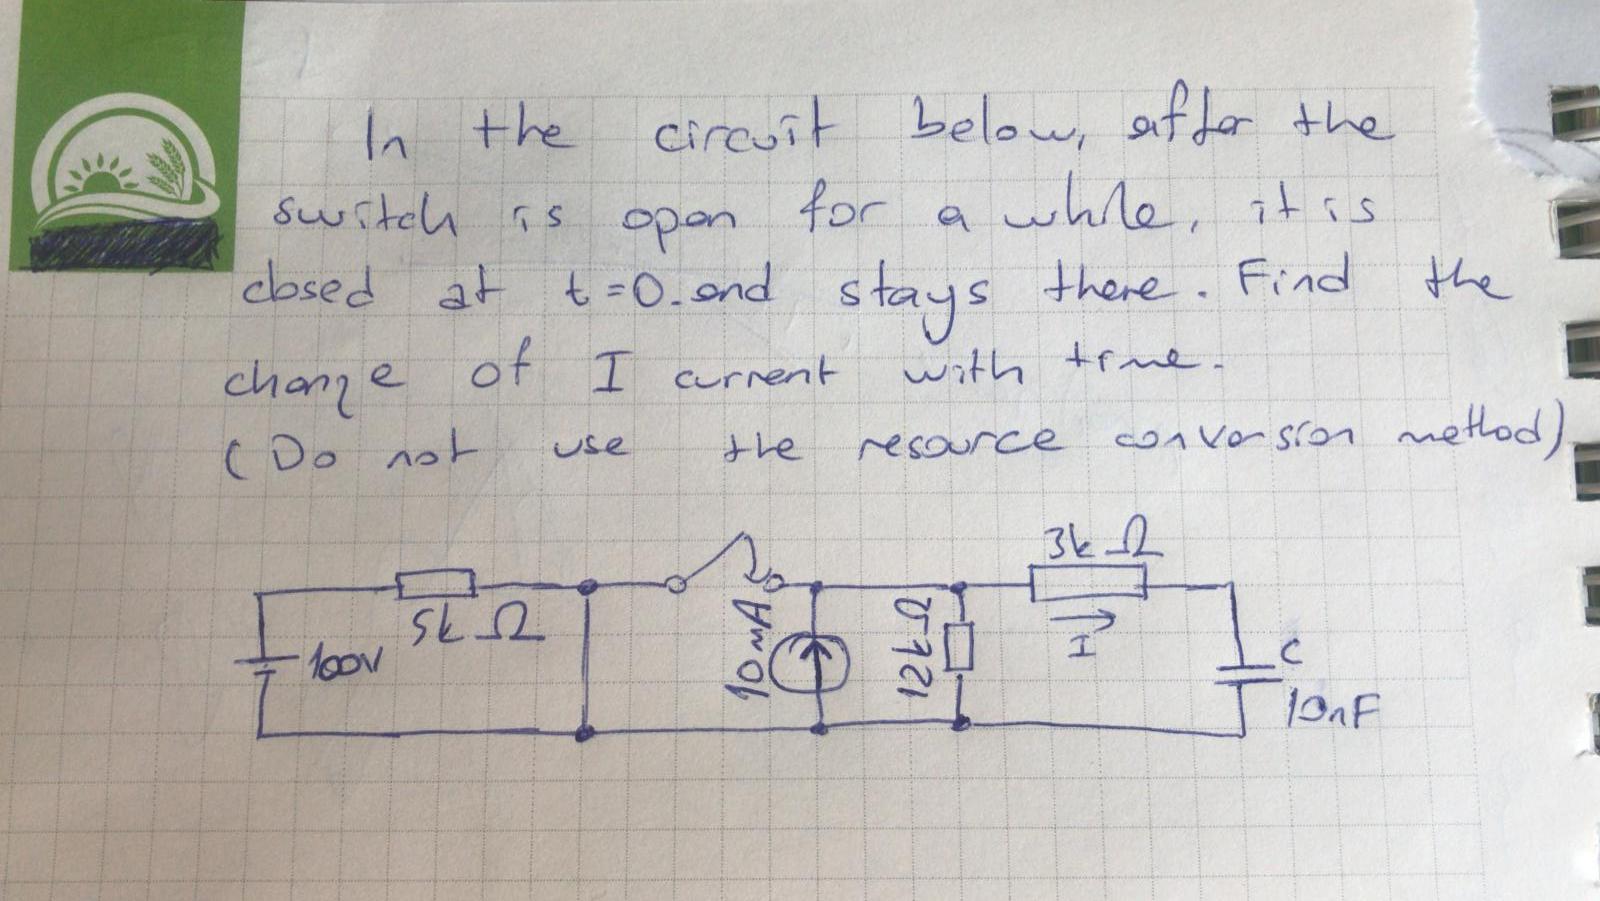 In the circuit below, after the
switch is open for a while, it is
closed at t=0.and stays there. Find the
change of I current with time.
(Do not use the resource conversion method)
3kΩ
5kΩ
100V
10mA
12kΩ
I
C
10nF